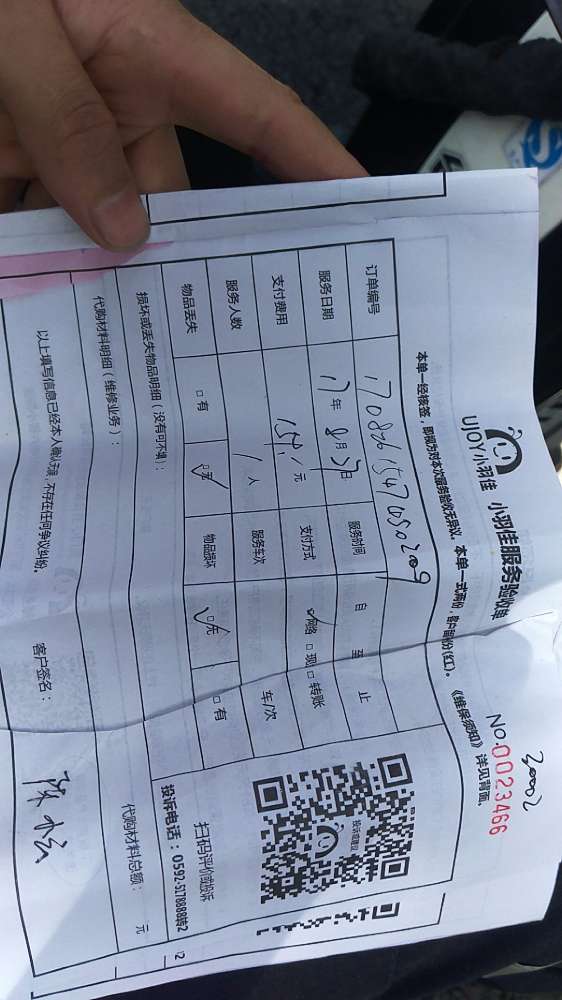 UJOY小羽佳 小羽佳服务验收单
30002
NO.0023466
本单一经核签，即视为对本次服务验收无异议。本单一式两份，客户留粉(红)。
《维保须知》详见背面。
订单编号
服务日期 17年 8月 3日 服务时间 自 至 止
支付费用 158.1元 支付方式 ☑网络 □现 □转账
服务人数 1人 服务车次 车/次
物品丢失 □有 ☑无 物品损坏 ☑无 □有
损坏或丢失物品明细（没有可不填）：
代购材料明细（维修业务）：
代购材料总额： 元
投诉或建议
扫码评价或投诉
投诉电话：0592-5178888转2
以上填写信息已经本人确认无误，不存在任何争议纠纷。
客户签名：